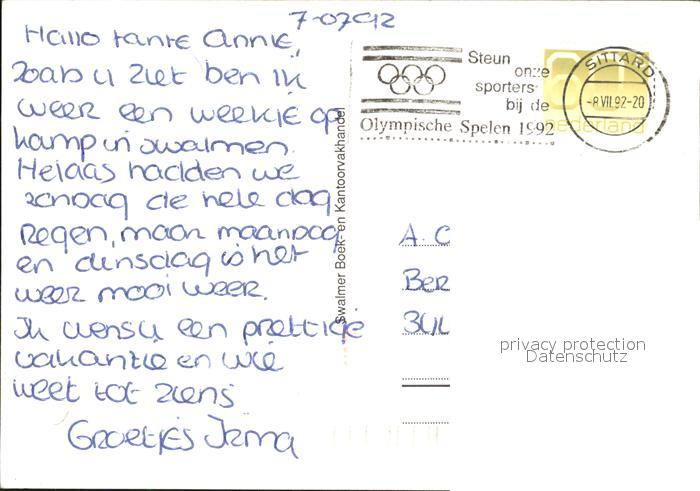 7-07-92
Hallo tante Annie,
Zoals u ziet ben ik
weer een weekje op
kamp in Swalmen.
Helaas hadden we
zondag de hele dag
regen, maar maandag
en dinsdag is het
weer mooi weer.
Ik wens u een prettige
vakantie en wie
weet tot ziens
Groetjes Irma
Swalmer Boek- en Kantoorvakhandel
Steun
onze
sporters
bij de
Olympische Spelen 1992
SITTARD
-8.VII.92-20
nederland
A. C
Ber
privacy protection
Datenschutz